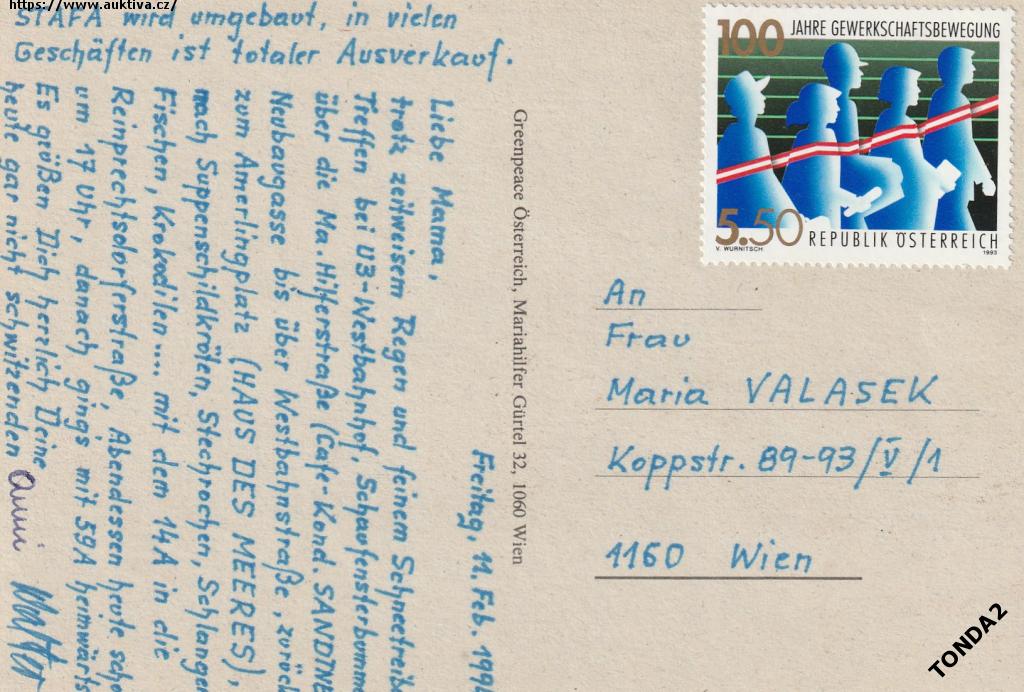 https://www.auktiva.cz/
STAFA wird umgebaut, in vielen
Geschäften ist totaler Ausverkauf.
Freitag, 11. Feb. 199
Liebe Mama,
trotz zeitweisem Regen und feinem Schneetreib
Treffen bei U3-Westbahnhof, Schaufensterbumme
über die Ma.Hilferstraße (Cafe-Kond. SANDINE
Neubaugasse bis über Westbahnstraße, zurück
zum Amerlingplatz (HAUS DES MEERES),
nach Suppenschildkröten, Stechrochen, Schlangen
Fischen, Krokodilen... mit dem 14A in die
Reinprechtsdorferstraße, Abendessen heute scho
um 17 Uhr, danach gings mit 59A heimwärts
Es grüßen Dich herzlich Deine
heute gar nicht schwitzenden Anni
Greenpeace Österreich, Mariahilfer Gürtel 32, 1060 Wien
100 JAHRE GEWERKSCHAFTSBEWEGUNG
5.50 REPUBLIK ÖSTERREICH
V. WURNITSCH. 1993
An
Frau
Maria VALASEK
Koppstr. 89-93/V/1
1160 Wien
TONDA2